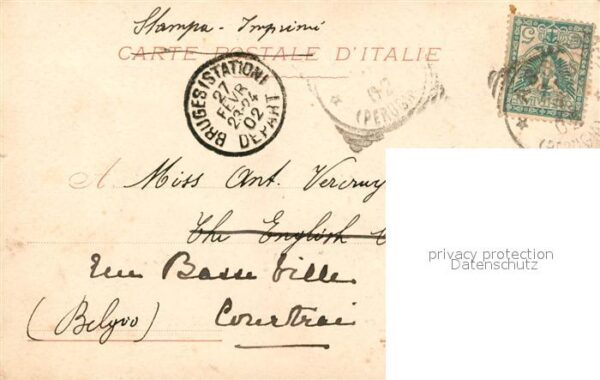 Stampa - Imprimé
CARTE POSTALE D'ITALIE
BRUGES (STATION)
27
FEVR
23-24
02
DEPART
(PERUGIA
(PERUGIA)
A. Miss Ant. Vercruy
The English
Basse Ville
(Belgio) Courtrai
privacy protection
Datenschutz